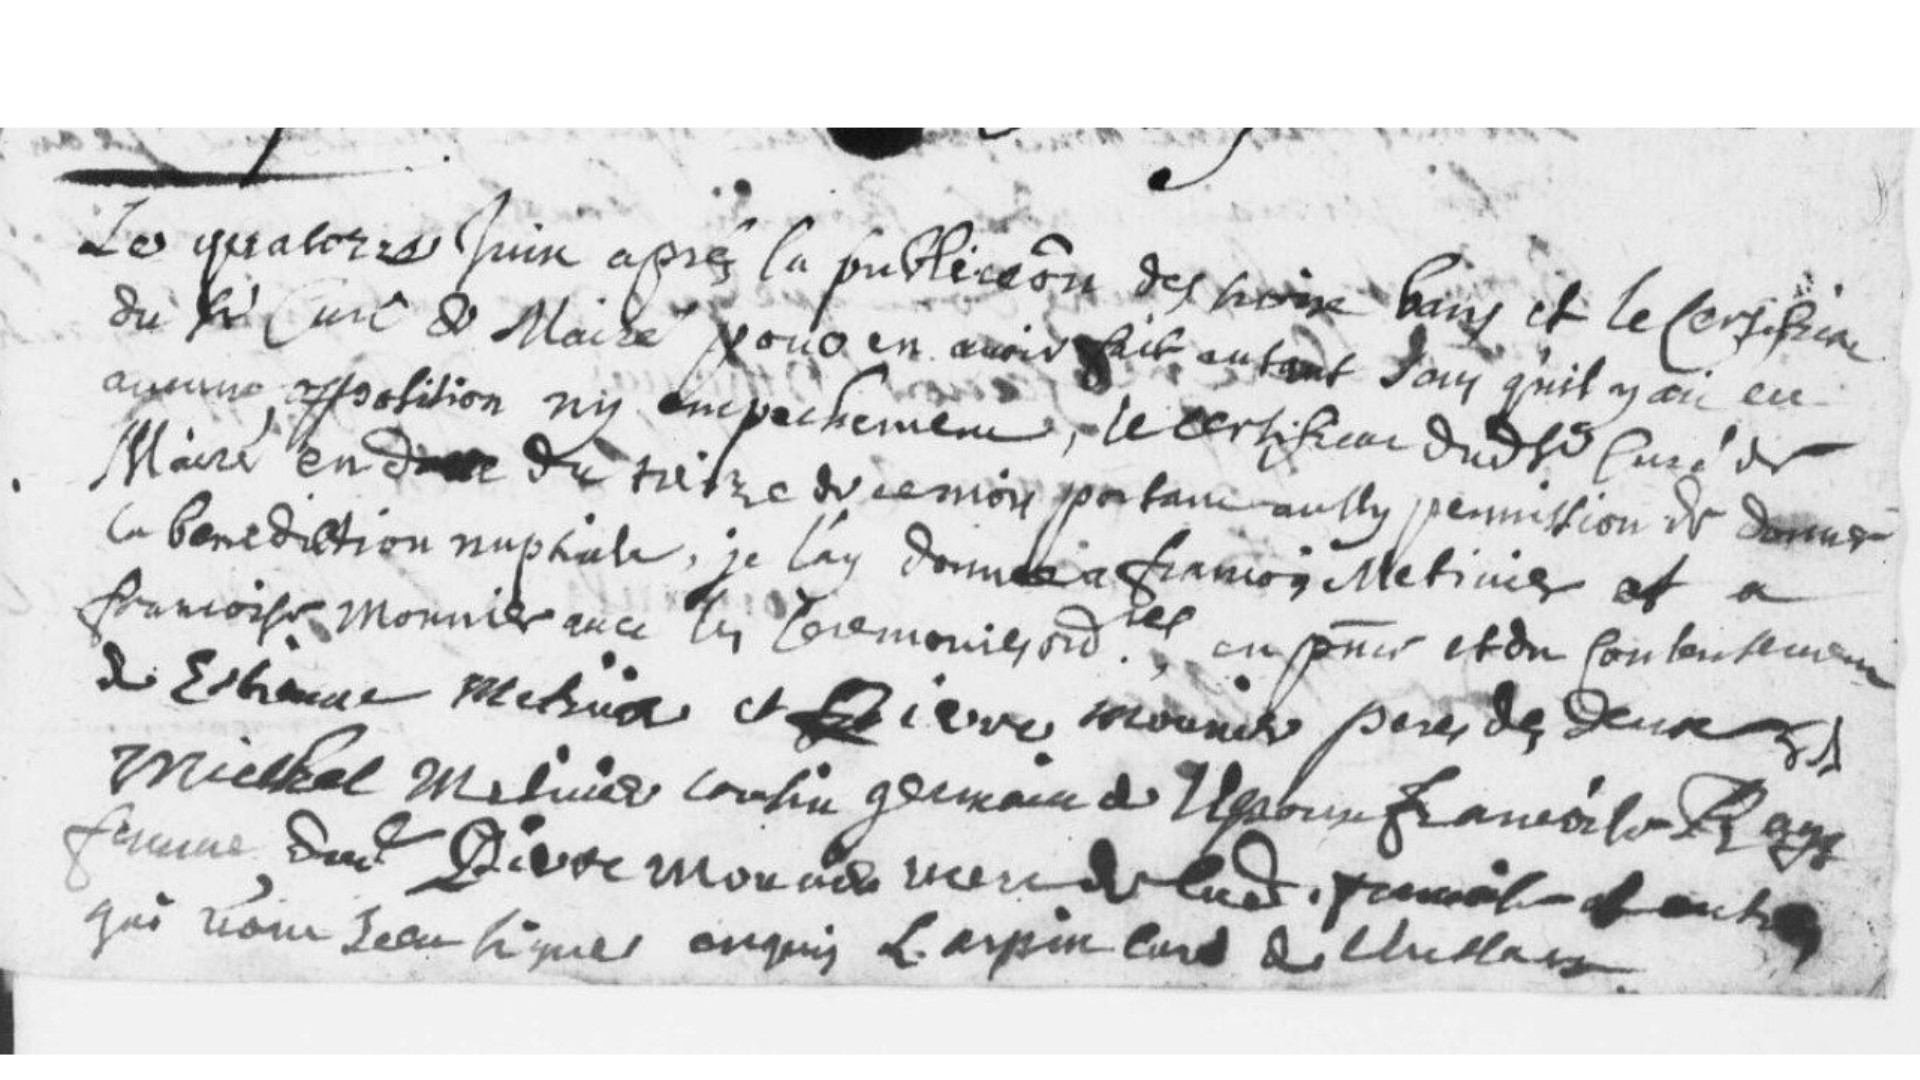 Le quatorze Juin après la publicaõn des trois bans et le Certificat
du Sr Curé de Mairé pour en avoir fait autant sans qu'il y ait eu
aucune opposition ny empechement, le certificat dudt Sr Curé de
Mairé en date du treize de ce mois portant aussy permission de donner
la benediction nuptiale, je l'ay donnée a françois Metivier et a
francoise Monnier avec les Ceremonies ord.res, en pñce et du Consentement
de Estienne Metivier et Pierre Monnier peres des deux
Michel Metivier cousin germain de l'Epoux francoise
femme dud Pierre Monnier mere de lad. francoise et autres
qui n'ont sceu signer enquis L. arpin curé de